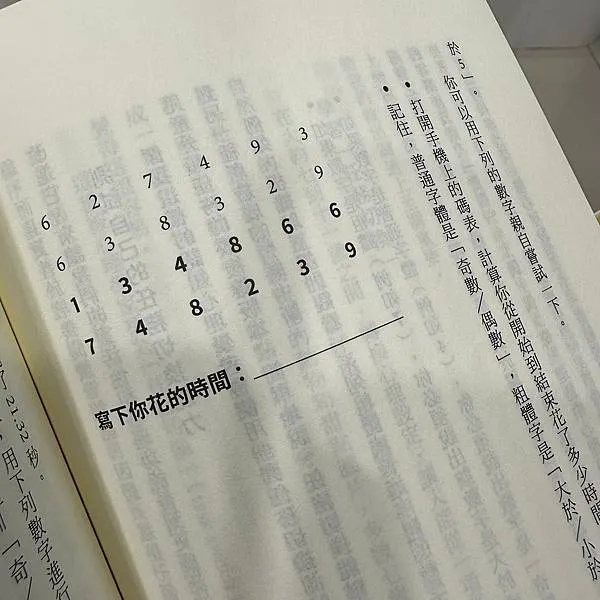 於 5」。
你可以用下列的數字親自嘗試一下。
• 打開手機上的碼表，計算你從開始到結束花了多少時間
• 記住，普通字體是「奇數／偶數」，粗體字是「大於／小於
6 2 7 4 9 3
6 3 8 3 2 9
1 3 4 8 6 6
7 4 8 2 3 9
寫下你花的時間：
了 21.32 秒。
用下列數字進行
「奇／